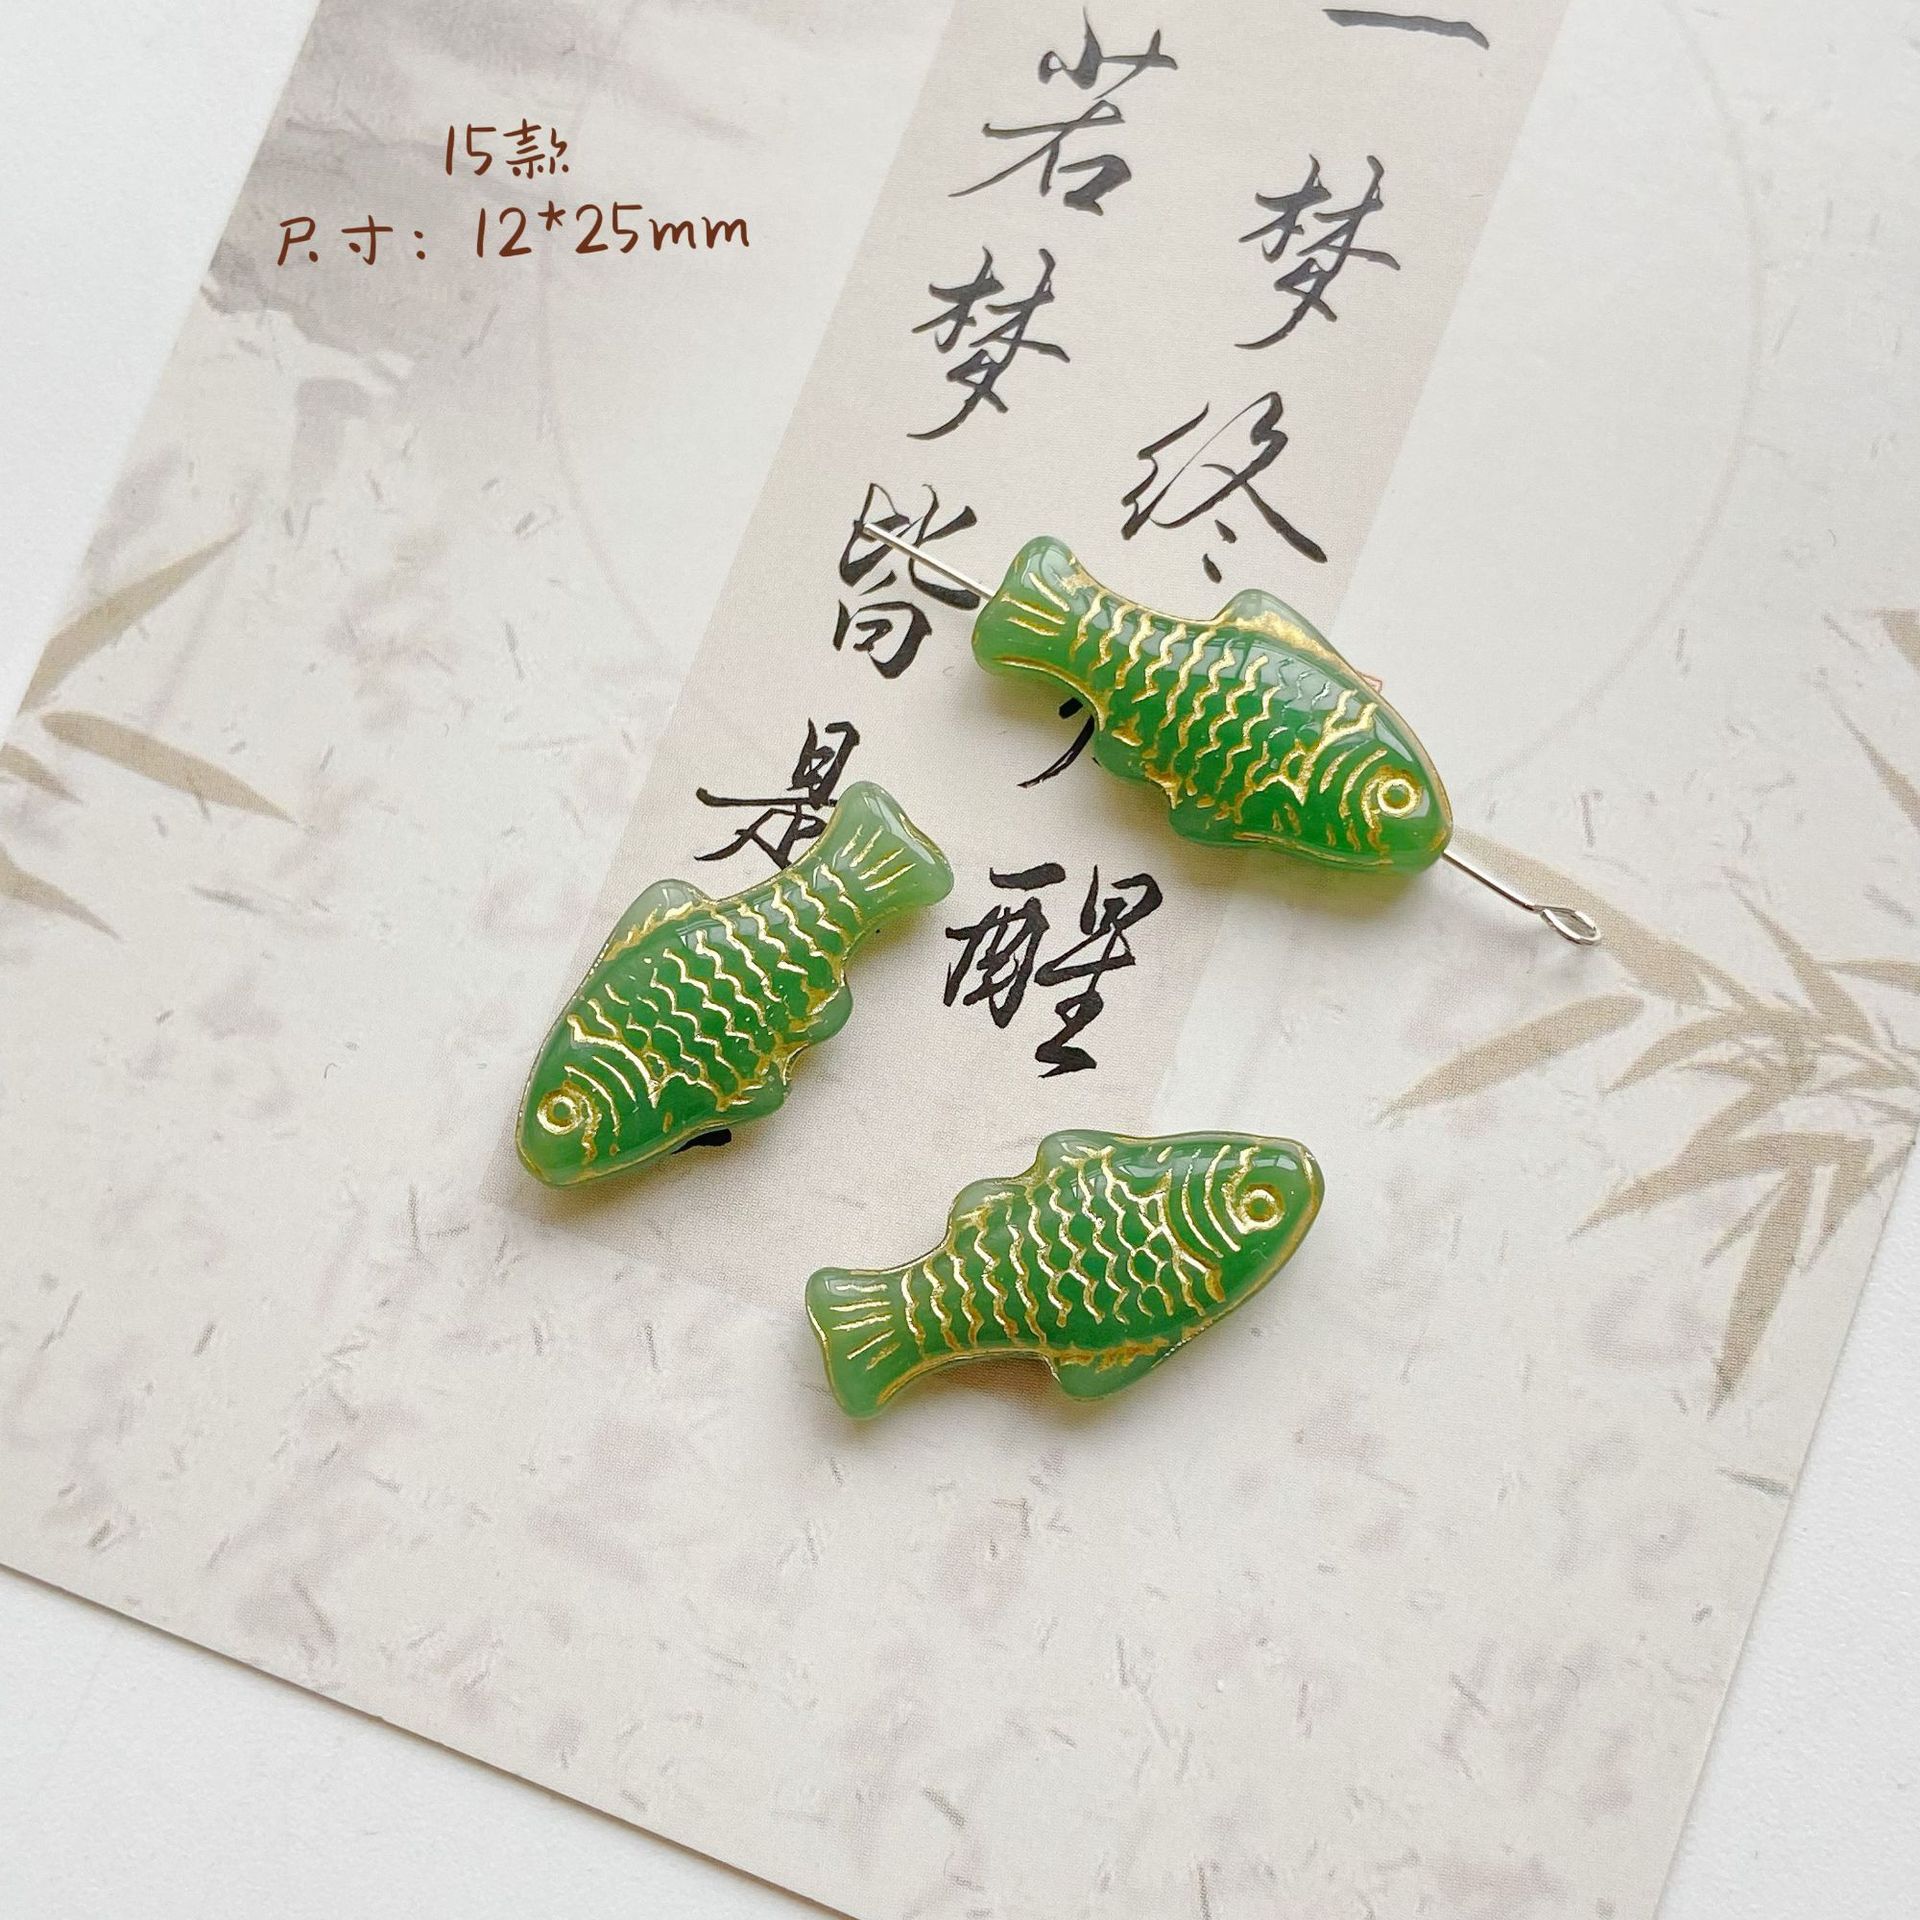 15款
尺寸：12*25mm
一梦终醒
若梦皆是